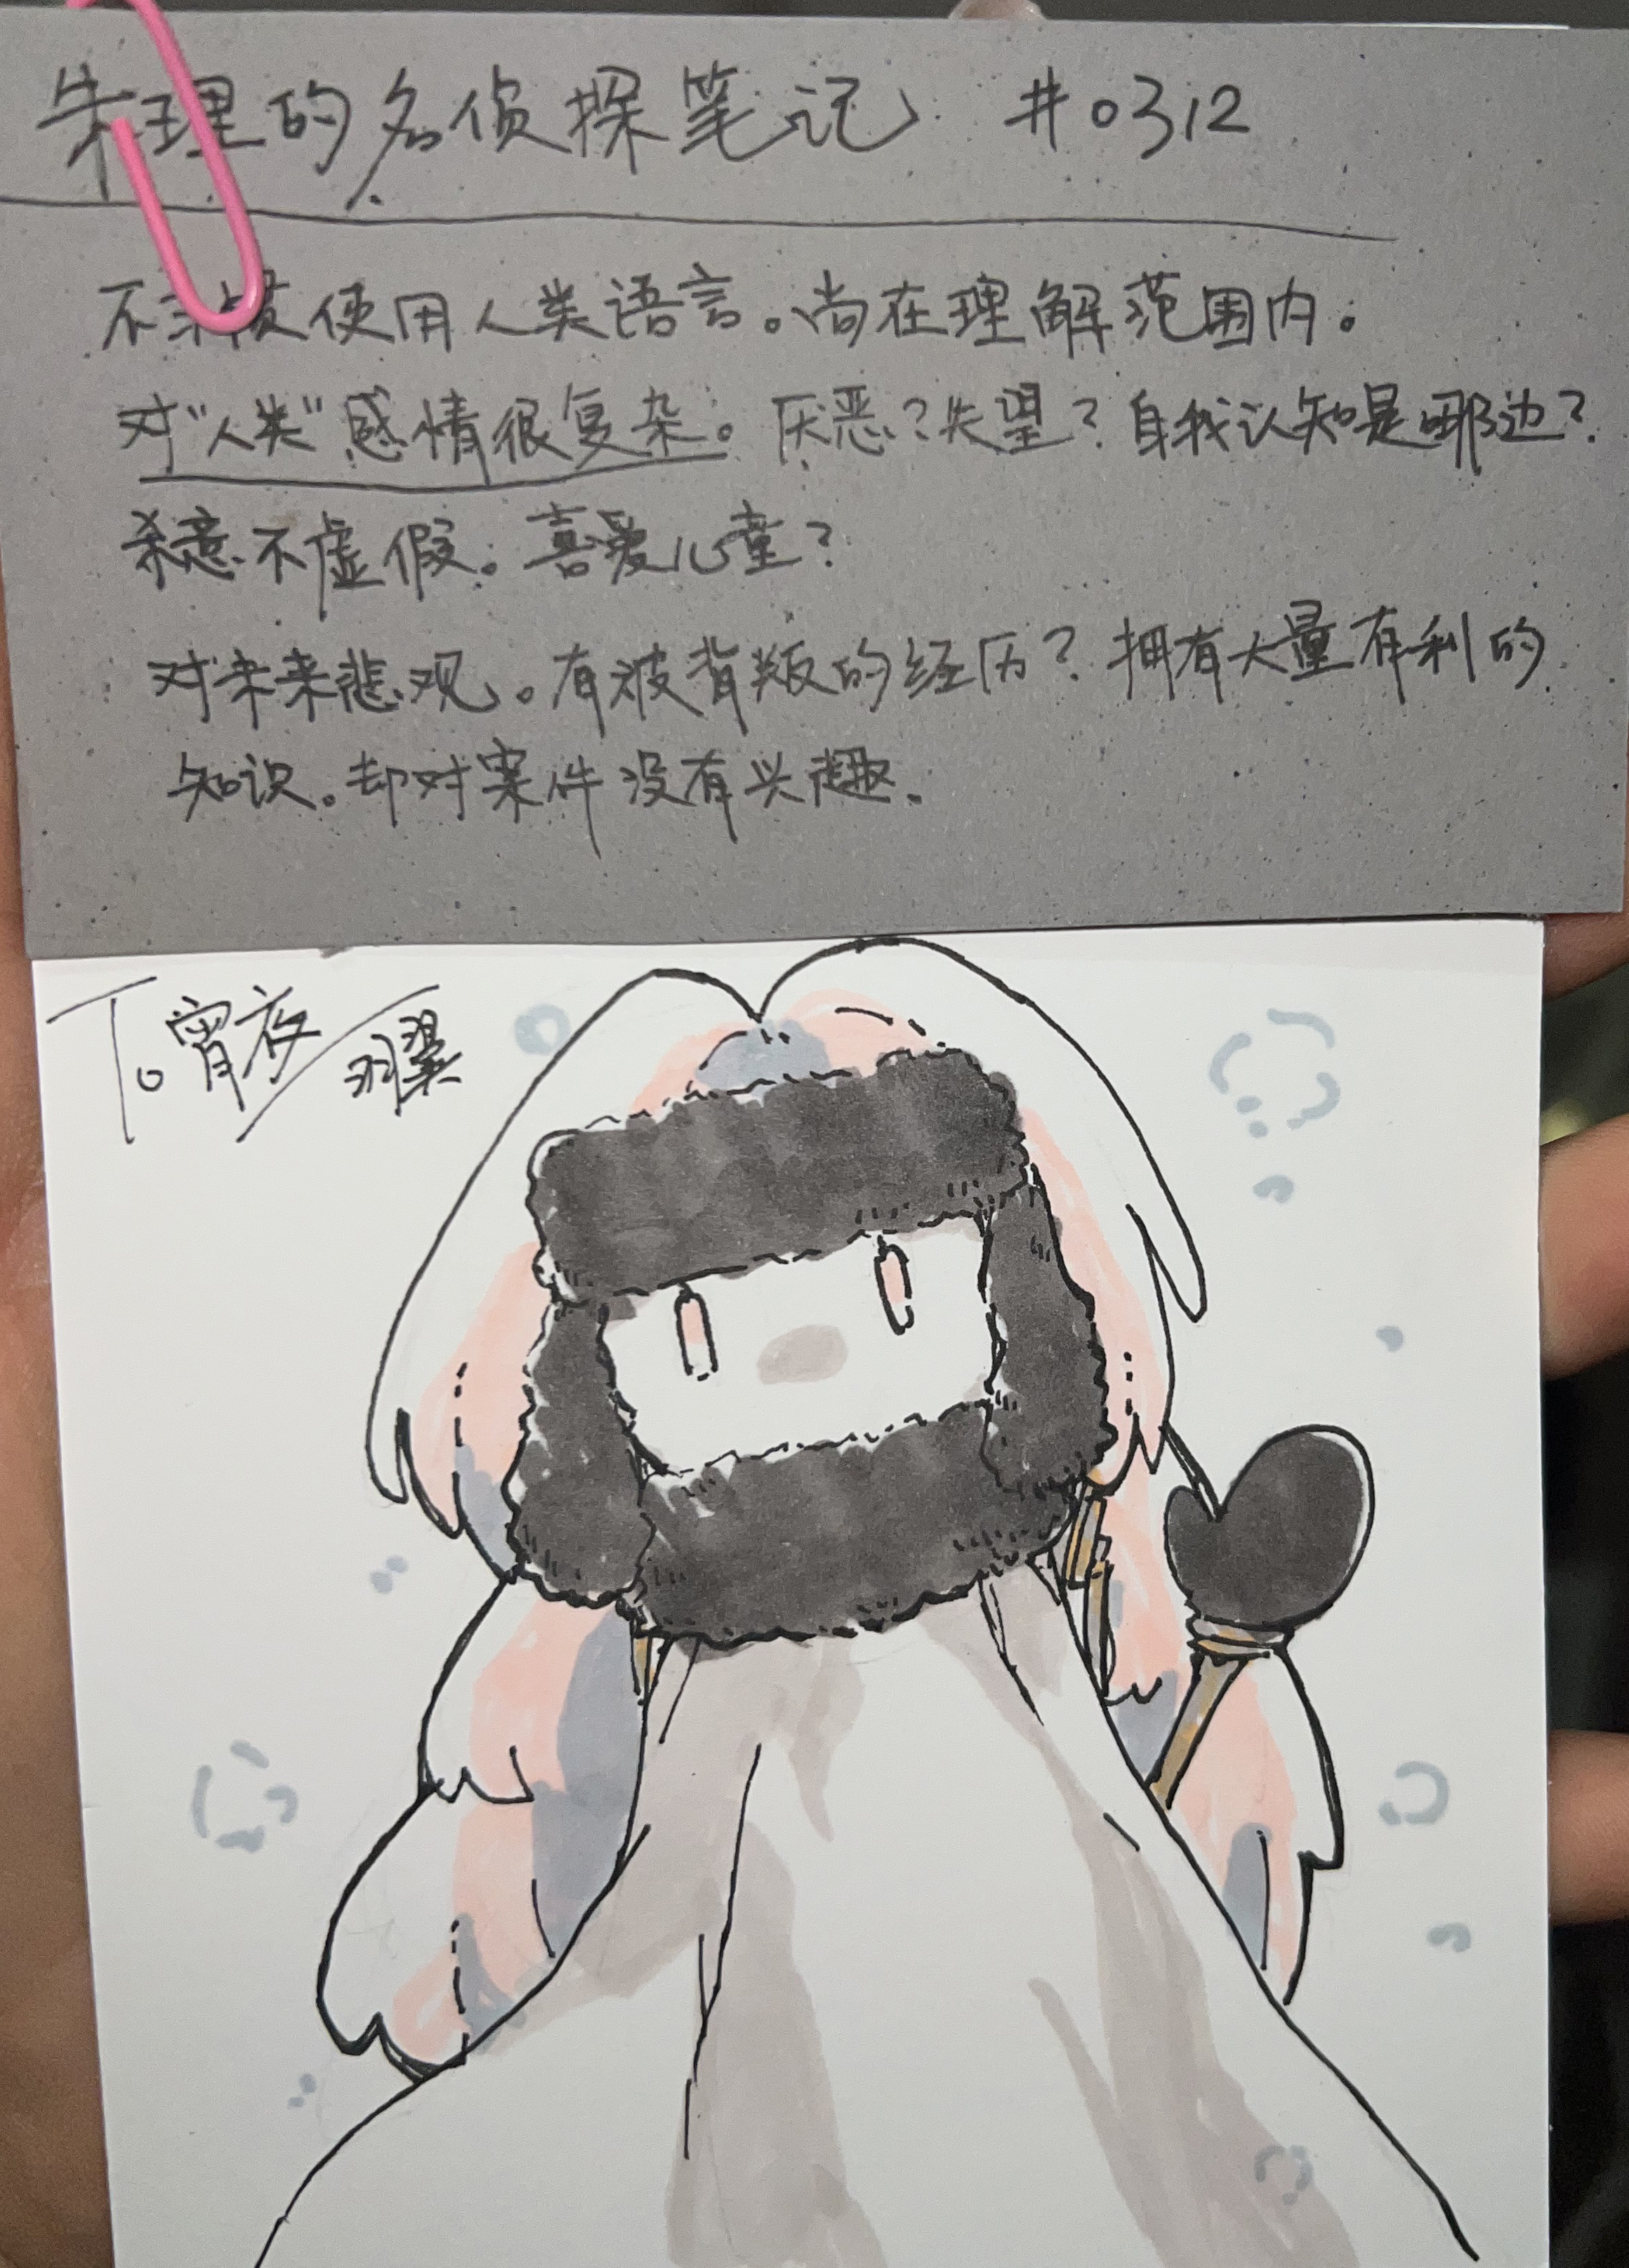 朱理的名侦探笔记 #0312
不习惯使用人类语言。尚在理解范围内。
对"人类"感情很复杂。厌恶?失望?自我认知是哪边?
杀意不虚假。喜爱儿童?
对未来悲观。有被背叛的经历?拥有大量有利的
知识。却对案件没有兴趣。
To 宵夜
翼